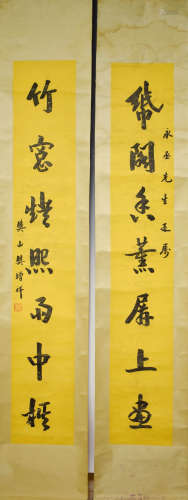 閣香薰屏上畫
丞先生正屬
竹窗燈照雨中棋
樊山樊增祥